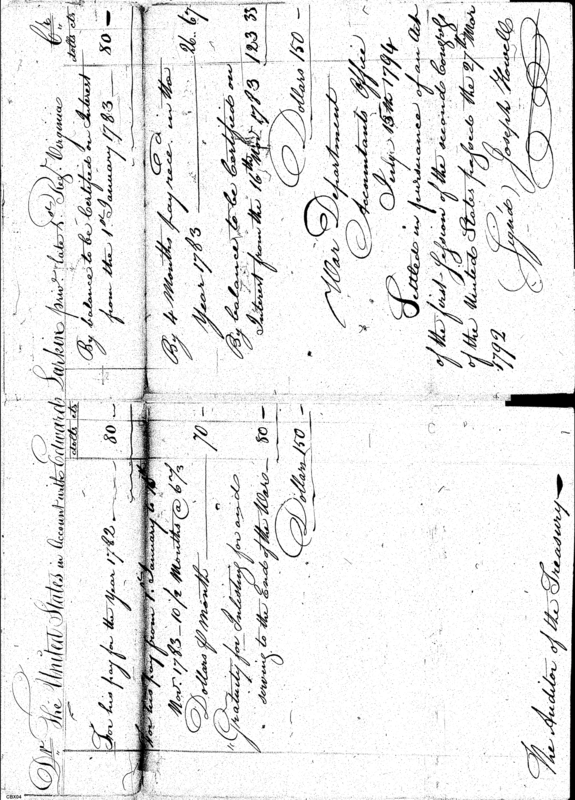 Dr. The United States in Account with Edward Larkin priv.t late 1st Reg.t Virginia Cr.
dolls cts
For his pay for the Year 1782 80 —
For his pay from 1st January to 16th
Nov.r 1783 10 1/2 Months @ 6 2/3
Dollars P Month 70 —
Gratuity for Inlisting for and
serving to the End of the War 80 —
Dollars 150 —
The Auditor of the Treasury —
dolls cts
By balance to be Certified on Interest
from the 1st January 1783 80 —
By 4 Months pay rec.d in the
Year 1783 26 67
By balance to be Certified on
Interest from the 16th Nov.r 1783 123 33
Dollars 150 —
War Department
Accountants Office
July 15th 1794
Settled in pursuance of an Act
of the first Session of the second Congress
of the United States passed the 27th Mar
1792
Sign'd Joseph Howell
CBX04